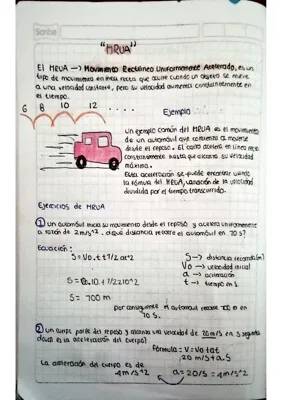 Scribe
"MRUA"
El MRUA —> Movimiento Rectilíneo Uniformemente Acelerado, es un
tipo de movimiento en línea recta que ocurre cuando un objeto se mueve
a una velocidad constante, pero su velocidad aumenta constantemente en
el tiempo.
6 8 10 12 . . . .
Ejemplo
Un ejemplo común del MRUA es el movimiento
de un automóvil que comienza a moverse
desde el reposo. El carro acelera en línea recta
constantemente hasta que alcanza su velocidad
máxima.
Esta aceleración se puede encontrar usando
la fórmula del MRUA, variación de la velocidad
dividida por el tiempo transcurrido.
Ejercicios de MRUA
① un automóvil inicia su movimiento desde el reposo y acelera uniformemente
a razón de 2m/s^2. ¿qué distancia recorre el automóvil en 10 s?
Ecuación:
S=Vo.t+1/2 at^2
S —> distancia recorrida (m)
Vo —> velocidad inicial
a —> aceleración
t —> tiempo en s
S = 100 m
por consiguiente el automóvil recorre m en
10 s.
② un cuerpo parte del reposo y alcanza una velocidad de 20m/s en 5 segundos
¿cuál es la aceleración del cuerpo?
Fórmula = V=Vo+at
20 m/s+a.5
La aceleración del cuerpo es de
4m/s^2
a=20/5 = 4m/s^2